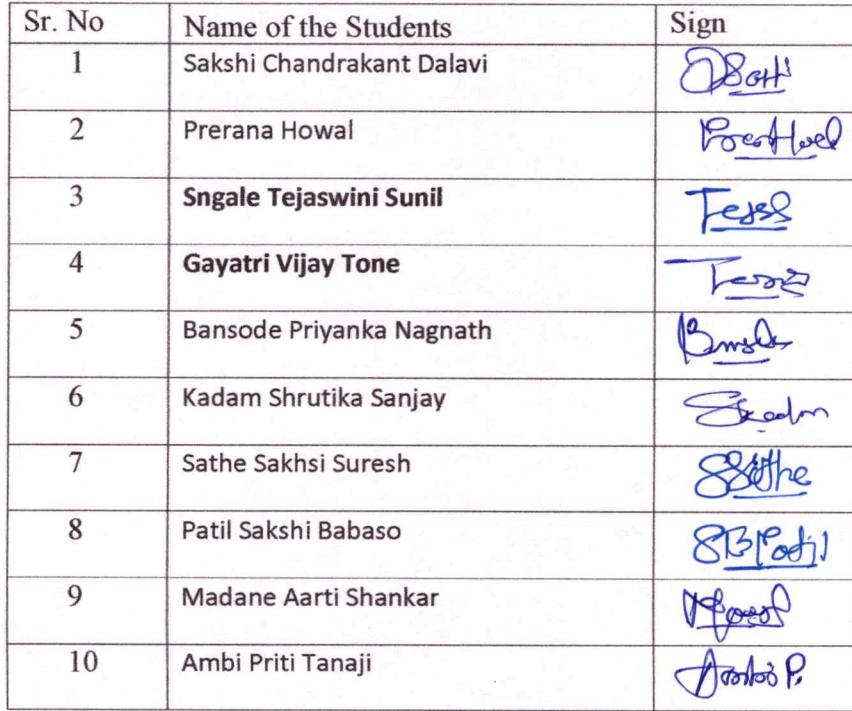 Sr. No Name of the Students Sign
1 Sakshi Chandrakant Dalavi
2 Prerana Howal
3 Sngale Tejaswini Sunil
4 Gayatri Vijay Tone
5 Bansode Priyanka Nagnath
6 Kadam Shrutika Sanjay
7 Sathe Sakhsi Suresh SSathe
8 Patil Sakshi Babaso SBPatil
9 Madane Aarti Shankar
10 Ambi Priti Tanaji